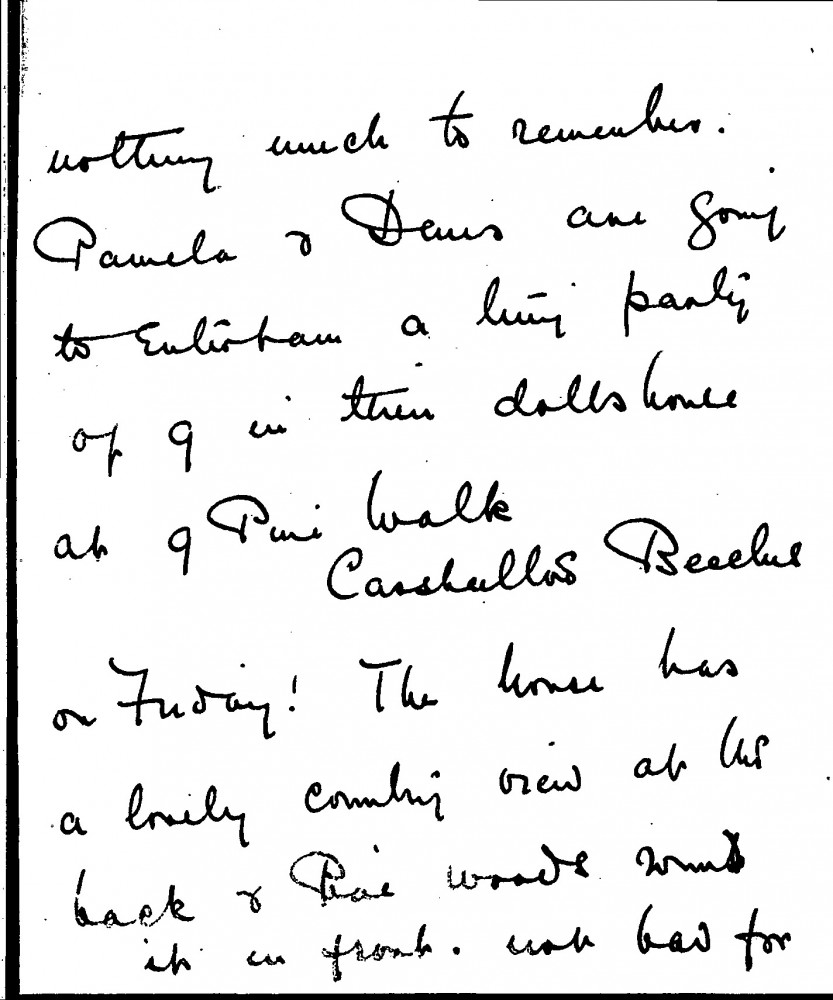 nothing much to remember.
Pamela & Denis are going
to Entertain a living party
of 9 in their dolls house
at 9 Pine Walk
Carshalton Beeches
on Friday! The house has
a lovely country view at the
back & Pine woods round
it in front. not bad for